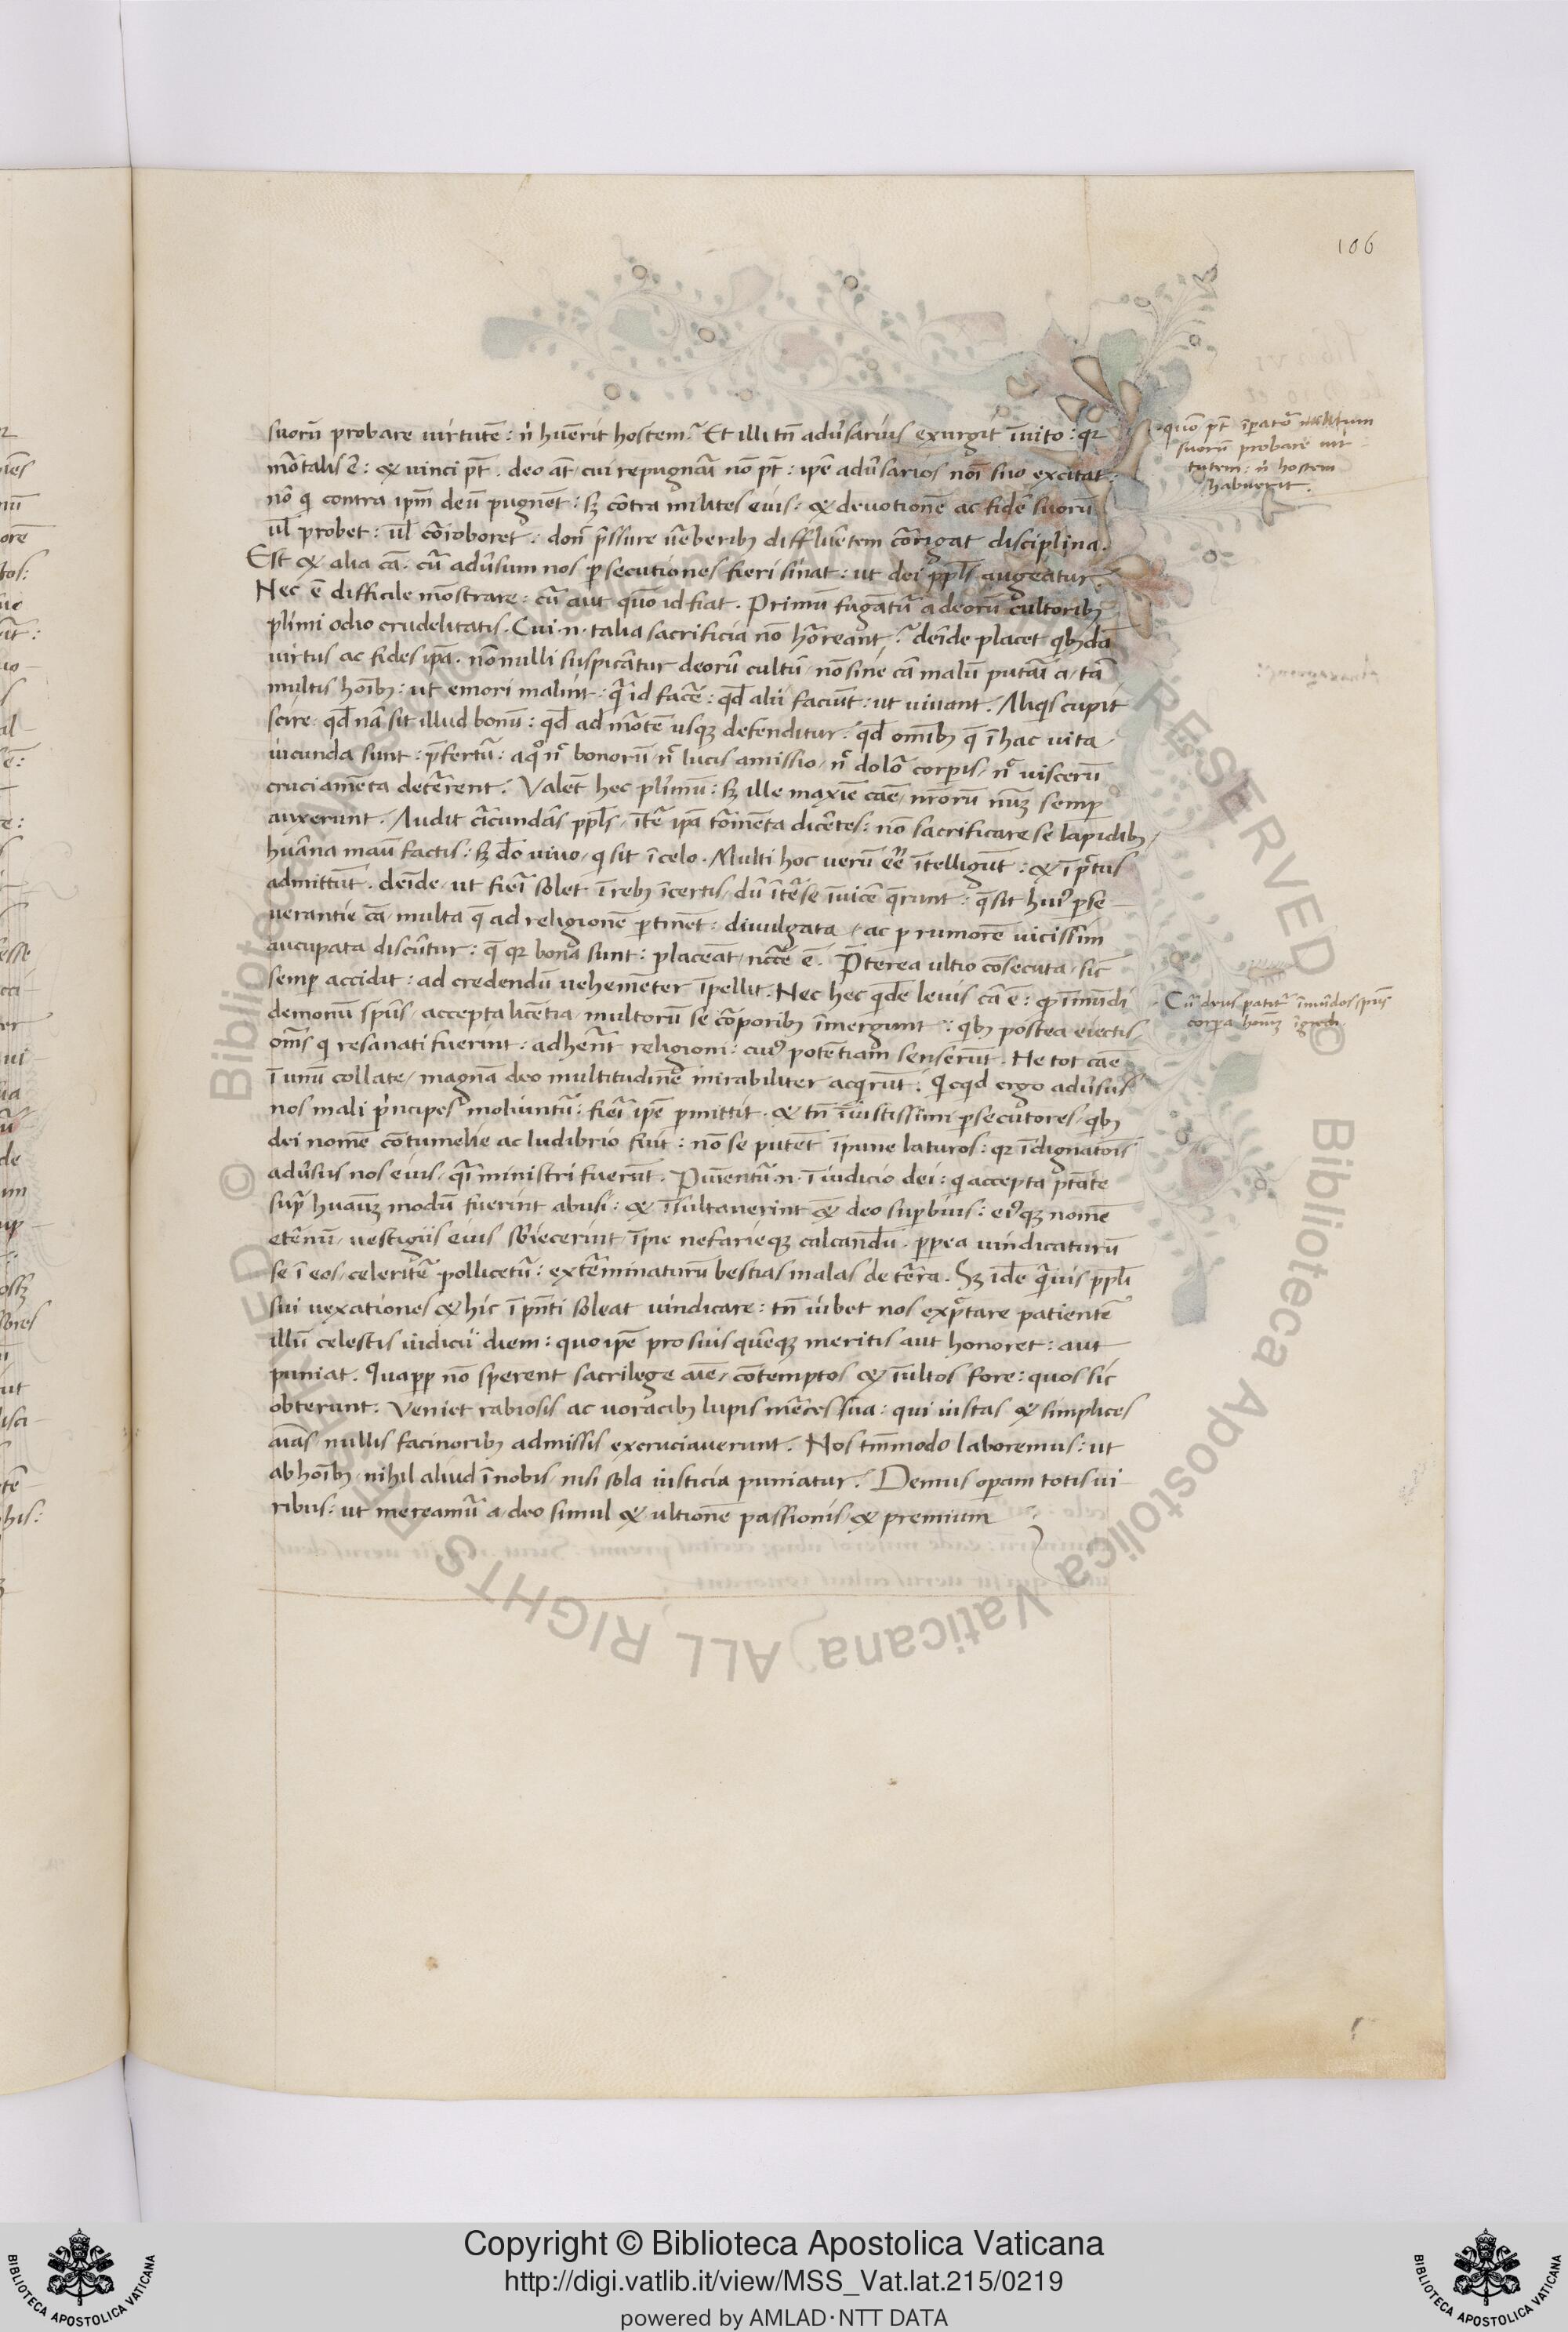 106
suorū probare uirtutē: n̓ huērit hostem? Et illi tn̄ adūsarius exurgit īuito: qꝛ
mōtalis ē: & uinci pt̄. deo aūt cui repugnāī nō pt̄: ipē adūsarios noī suo excitat:
nō qi contra ipm̄ deū pugnēt: sꝫ cōtra milites eius: & deuotionē ac fidē suorū
ul̄ probet: ul̄ cōroboret: don̄ p̄ssure ūberibꝫ diffluētem cōrigat disciplina.
Est & alia cā. cū adūsum nos p̱secutiones fieri sinat: ut dei pp̄ls augeatur.
Nec ē difficile mōstrare: cū aut quō id fiat. Primū fugātū a deorū cultoribꝫ
p̄limi odio crudelitatis. Cui .n. talia sacrificia nō hōreant? deīde placet qbꝫdā
uirtus ac fides ip̄a. nōnulli suspicātur deorū cultū nō sine cā malū putāī a tā
multis hoībꝫ: ut emori malint: qā id facē: qd̄ alii faciūt: ut uiuant. Aliqis cupit
scire qd̄ nā sit illud bonū: qd̄ ad mōtē usqꝫ defenditur: qd̄ omībꝫ q̄ ī hac uita
iucunda sunt: p̄fertū: a qͦ nꝙ bonorū nꝙ lucis amissio nꝙ dolō corp̱is nꝙ uiscerū
cruciamēta detērent. Valēt hec pl̓imū: sꝫ ille maxīe cāe nr̄orū nūꝫ semp̱
auxerunt. Audit cīcundās pp̄ls ītē ip̄a tōmēta dicētes: nō sacrificare se lapidibꝫ
huāna manū factis: sꝫ dō uiuo qi sit ī celo. Multi hoc uerū ēē ītelligūt: & ī p̄tus
admittūt. deīde ut fieī solet ī rebꝫ īcertis dū ītēse īuicē q̄runt: q̄ sit huiꝰ p̱se-
uerantie cā multa q̄ ad religionē p̱tinēt: diuulgata ac p̱ rumorē uicissim
aucupata discūtur: q̄ qꝛ bona sunt: placeāt ncc̄e ē. P̄terea ultio cōsecuta sic
semp̱ accidit: ad credendū uehemēter īpellit. Nec hec qdē leuis cā ē: q̱ īmūdi
demonū spūs accepta licētia multorū se cōporibꝫ īmergunt: qbꝫ postea eiectis
om̄s qi resanati fuerint: adherēt religioni: cuiꝰ potētiam senserūt. He tot cāe
ī unū collate magnā deo multitudinē mirabiliter acqrūt. Qicqd ergo adūsus
nos mali p̓ncipes moliuntū: fieī ipē p̱mittit. & tn̄ īiustissimi p̱secutores qbꝫ
dei nomē cōtumelie ac ludibrio fuit: nō se putēt īpune laturos: qꝛ īdignatōīs
adūsus nos eius qāi ministri fuerūt. Puīentū .n. iudicio dei: qi accepta ptāte
sup̱ huānꝫ modū fuerint abusi: & īsultauerint & deo sup̱bius: eiꝰqꝫ nomē
etērnū uestigiis eius sb̓iecerint īpie nefarieqꝫ calcandū. p̱p̱ea uindicaturū
se ī eos celeritē pollicetū: extēminaturū bestias malas de tēra. Sꝫ idē qāuis pp̄li
sui uexationes & hic ī pn̄ti soleat uindicare: tn̄ iubet nos exp̄tare patientē
illū celestis iudicii diem: quo ipē pro suis quēqꝫ meritis aut honoret: aut
puniat. Quap̱p̱ nō sperent sacrilege aīe cōtemptos & īultos fore: quos sic
obterunt. Veniet rabiosis ac uoracibꝫ lupis mēces sua: qui iustas & simplices
aīas nullis facinoribꝫ admissis excruciauerunt. Nos tm̄modo laboremus: ut
ab hoībꝫ nihil aliud ī nobis nisi sola iusticia puniatur. Demus op̱am totis ui-
ribus: ut mereamū a deo simul & ultionē passionis & premium
quō pt̄ īp̱atō militum
suorū probare uir
tutem: n̓ hostem
habuerit.
Cū deus patitū īmūdos spūs
corp̱a hoīnꝫ īgredi
Copyright © Biblioteca Apostolica Vaticana
http://digi.vatlib.it/view/MSS_Vat.lat.215/0219
powered by AMLAD·NTT DATA
BIBLIOTECA APOSTOLICA VATICANA
BIBLIOTECA APOSTOLICA VATICANA
© Biblioteca Apostolica Vaticana ALL RIGHTS RESERVED